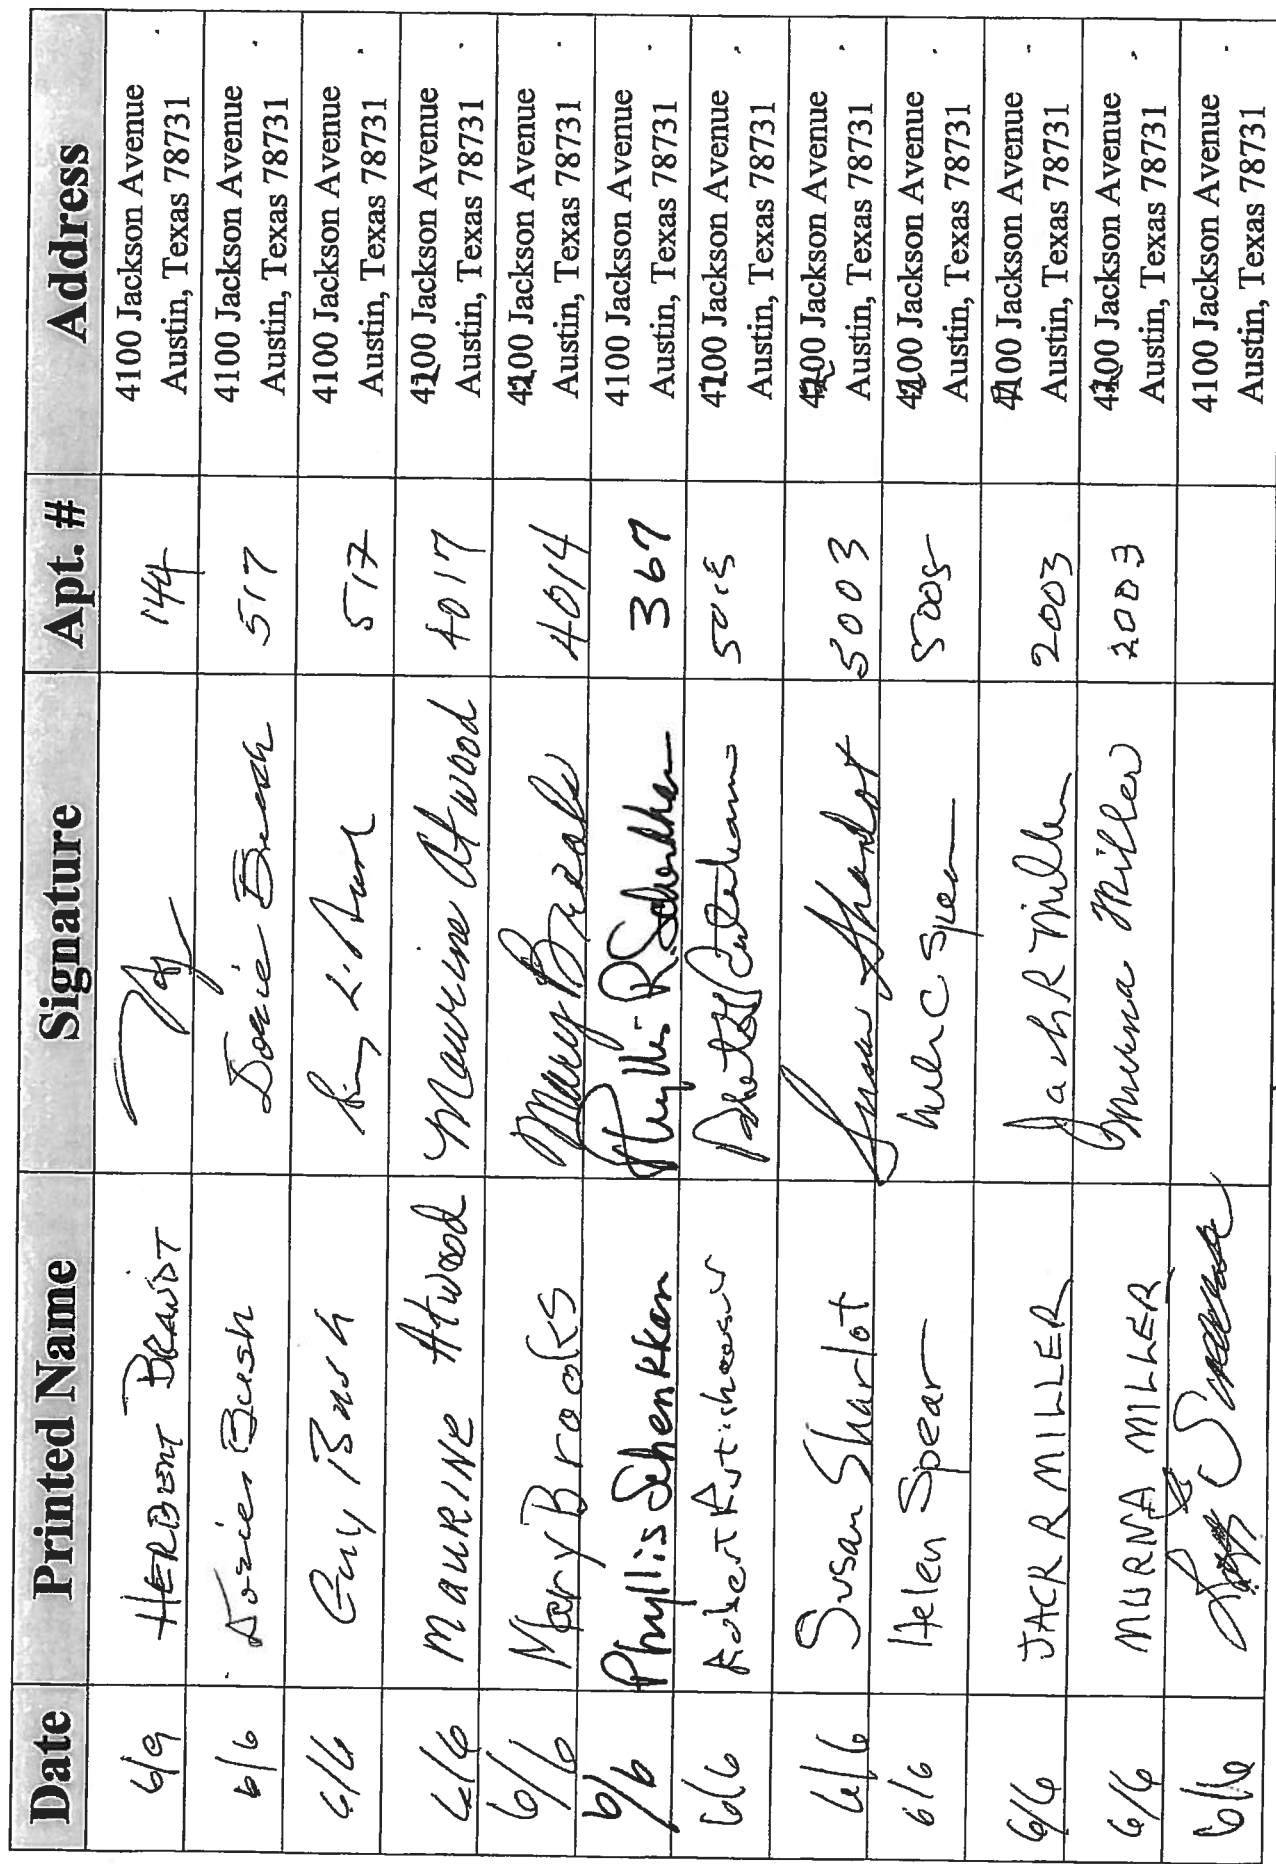 Date Printed Name Signature Apt. # Address
6/9 HERBERT BRANDT 144 4100 Jackson Avenue
Austin, Texas 78731
6/6 Dozie Bush Dozie Bush 517 4100 Jackson Avenue
Austin, Texas 78731
6/6 Guy Bush 517 4100 Jackson Avenue
Austin, Texas 78731
6/6 MAURINE Atwood Maurine Atwood 4017 4200 Jackson Avenue
Austin, Texas 78731
6/6 Mary Brooks Mary Brooks 4014 4200 Jackson Avenue
Austin, Texas 78731
6/6 Phyllis Schenkkan Phyllis R. Schenkkan 367 4100 Jackson Avenue
Austin, Texas 78731
6/6 Robert 5015 4200 Jackson Avenue
Austin, Texas 78731
6/6 Susan Sharlot Susan Sharlot 5003 4200 Jackson Avenue
Austin, Texas 78731
6/6 Helen Spear Helen C Spear 5005 4200 Jackson Avenue
Austin, Texas 78731
6/6 JACK R MILLER Jack R Miller 2003 4200 Jackson Avenue
Austin, Texas 78731
6/6 MURNA MILLER Murna Miller 2003 4200 Jackson Avenue
Austin, Texas 78731
6/6 4100 Jackson Avenue
Austin, Texas 78731